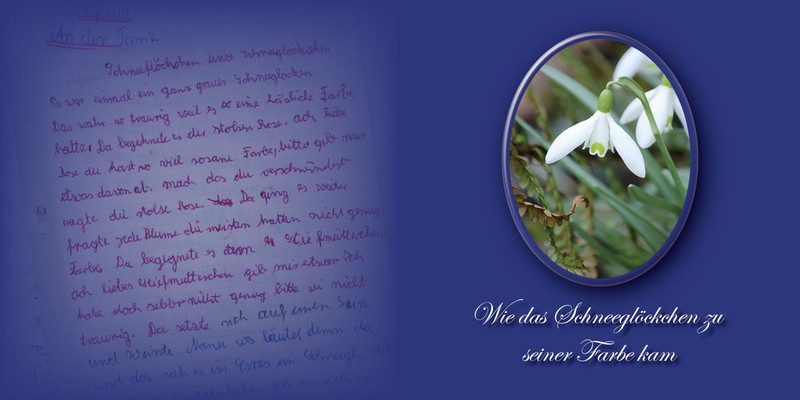 An der Tomk
Schneeflöckchen und Schneeglöckchen
Es war einmal ein ganz graues Schneeglöcken
Das wahr so traurig weil es so eine häsliche Farbe
hatte. Da begeknete es der stolsen Rose. ach liebe
Rose du hast so viel rosane Farbe, bitte gib mir
etwas davon ab. mach das du verschwindest
sagte die stolse Rose. Da ging es weiter
fragte jede Blume die meisten hatten nicht genug
Farbe. Da begegnete es dem Stiefmütterchen
ach liebes Stiefmütterchen gib mir etwas Ich
habe doch selber nicht genug bitte sei nicht
traurig. Da setzte sich auf einen Stein
und weinte. Nanu wo läutet denn da
und das sah es im Gras ein Schneegl.
gib mir etwas
Wie das Schneeglöckchen zu
seiner Farbe kam